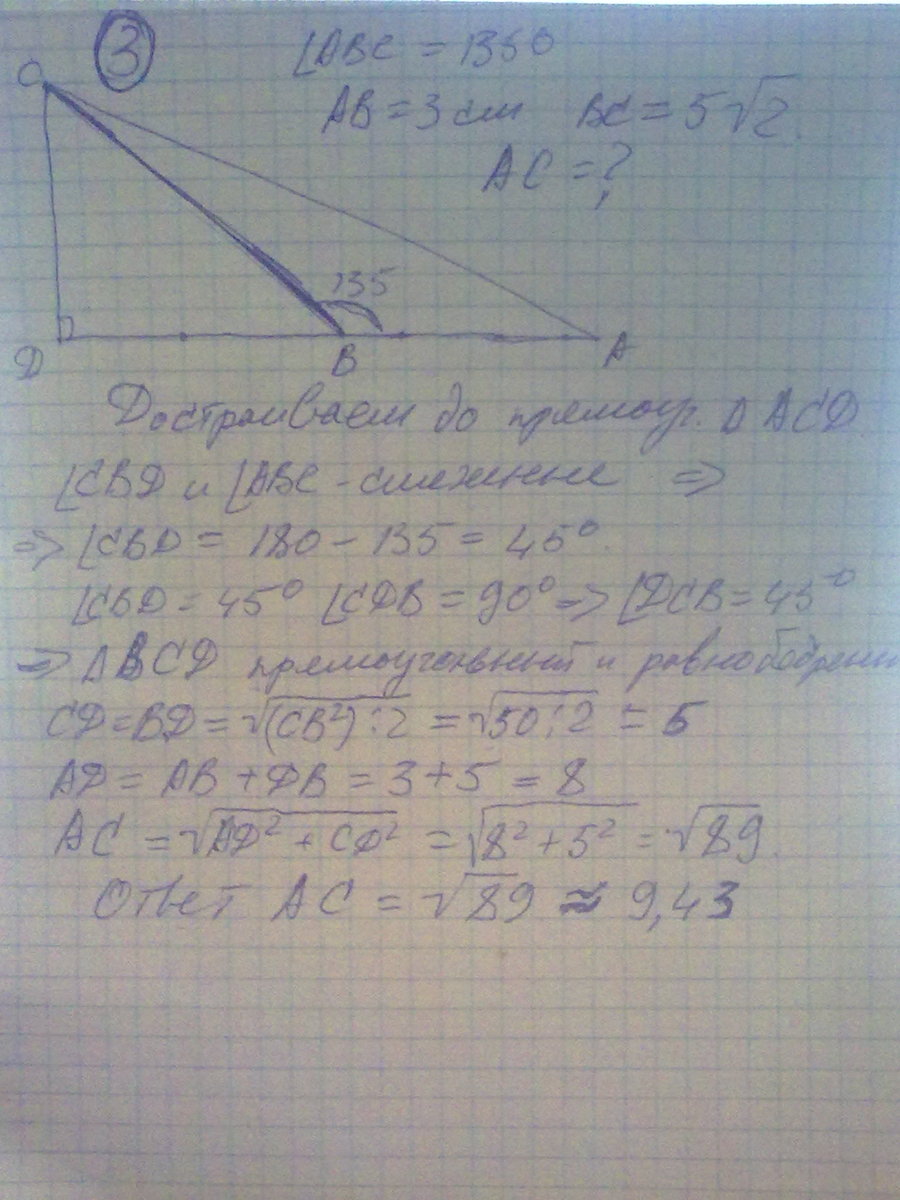 3
∠ABC = 135°
AB = 3 см BC = 5√2.
AC = ?
C
135
D
B
A
Достраиваем до прямоуг. Δ ACD
∠CBD и ∠ABC - смежные ⇒
⇒ ∠CBD = 180 - 135 = 45°.
∠CBD = 45° ∠CDB = 90° ⇒ ∠DCB = 45°
⇒ ΔBCD прямоугольный и равнобедрен
CD = BD = √(CB²):2 = √50:2 = 5
AD = AB + DB = 3 + 5 = 8
AC = √AD² + CD² = √8² + 5² = √89.
Ответ AC = √89 ≈ 9,43